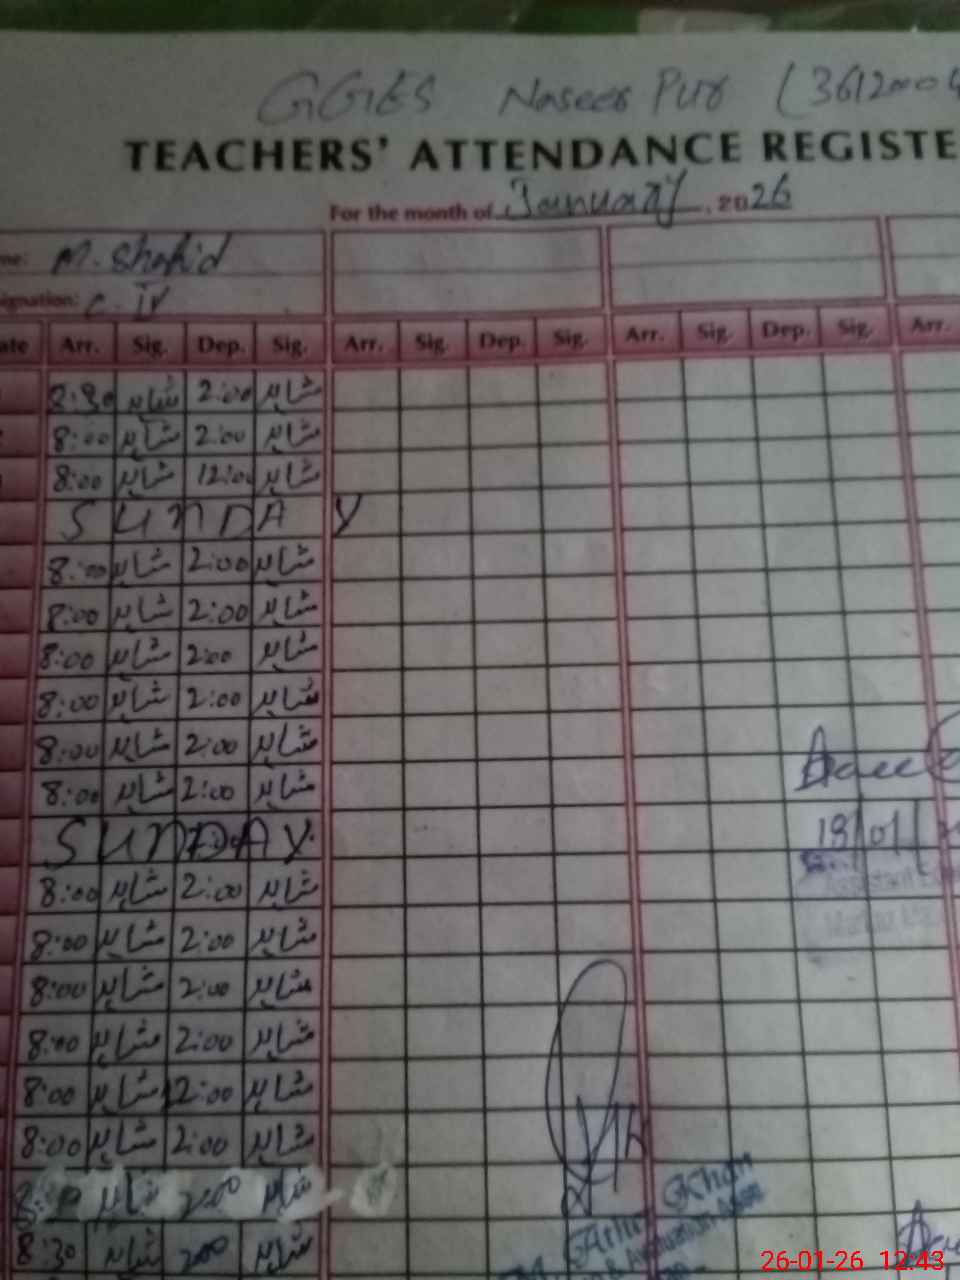 GGES Naseer Pur (3612000
TEACHERS' ATTENDANCE REGISTE
For the month of January, 2026
me: M. Shahid
signation: C. IV
ate Arr. Sig. Dep. Sig. Arr. Sig. Dep. Sig. Arr. Sig. Dep. Sig. Arr.
8:30 شاہد 2:00 شاہد
8:00 شاہد 2:00 شاہد
8:00 شاہد 12:00 شاہد
SUNDAY
8:00 شاہد 2:00 شاہد
8:00 شاہد 2:00 شاہد
8:00 شاہد 2:00 شاہد
8:00 شاہد 2:00 شاہد
8:00 شاہد 2:00 شاہد
8:00 شاہد 2:00 شاہد
SUNDAY
18/01/
8:00 شاہد 2:00 شاہد
Assistant
8:00 شاہد 2:00 شاہد
8:00 شاہد 2:00 شاہد
8:00 شاہد 2:00 شاہد
8:00 شاہد 2:00 شاہد
8:00 شاہد 2:00 شاہد
شاہد 2:00 شاہد
Khan
8:30 شاہد 200 شاہد
26-01-26 12:43